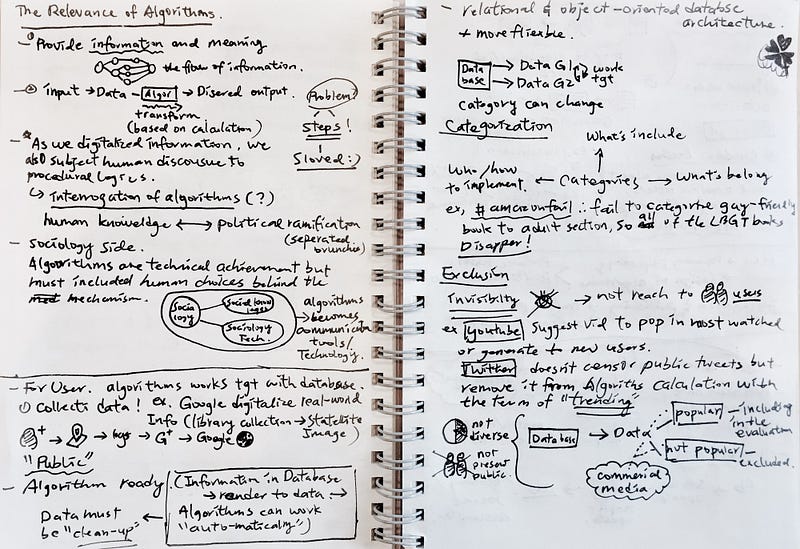 The Relevance of Algorithms.
- Provide information and meaning
the fiber of information.
Input → Data → Algor → Disered output.
transform
(based on calculation)
Problem?
Steps!
Sloved :)
- As we digitalized information, we
also subject human discousue to
procedural logics.
↳ interrogation of algorithms (?)
human knowledge ↔ political ramification
(seperated
brunches)
- Sociology side.
Algorithms are technical achievement but
must included human choices behind the
mechanism.
Socio
logy
Sociology
Tech.
algorithms
→ becomes
communication
tools/
Technology.
- For User. algorithms works tgt with database.
① collects data! ex. Google digitalize real-world
Info (library collection → Statellite
Image)
→ → → G+ → Google
"Public"
- Algorithm ready
(Information in Database
→ render to data →
Algorithms can work
"auto-matically")
Data must ←
be "clean-up"
- relational & object-oriented databse
architecture.
+ more fliexble.
Data
base
→ Data G1
→ Data G2
work
tgt
category can change
Categorization
What's include
↑
Who/how
to implement. ← Categories → What's belong
ex, #amazonfail ∴ fail to categorize gay-friendly
book to adult section, so all of the LBGT books
Disapper!
Exclusion
Invisibilty → not reach to users
ex Youtube suggest vid to pop in most watched
or generate to new users.
Twitter doesn't censor public tweets but
remove it from Algoriths calculation with
the term of "trending"
not
diverse
not
present
public.
Database → Data
popular
- including
in the
evaluation
not popular
- excluded.
commerial
media